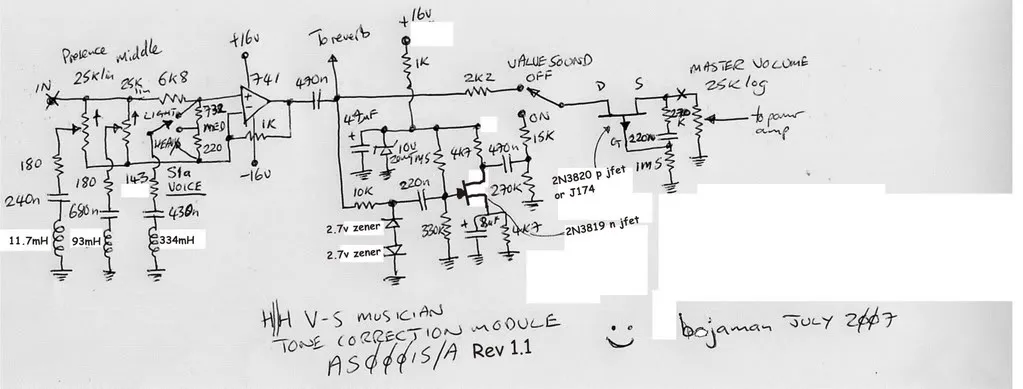 +16v
To reverb
Presence
25K lin
middle
25K lin
6K8
+16v
741
470n
1K
2K2
VALVE SOUND
OFF
ON
D
S
G
MASTER VOLUME
25K log
to power amp
IN
LIGHT
MED
HEAVY
S1a
VOICE
732
220
1K
-16v
4.7uF
10v
4K7
470n
15K
270K
220n
1M5
2N3820 p jfet
or J174
2N3819 n jfet
180
240n
11.7mH
180
680n
93mH
143
430n
334mH
10K
220n
2.7v zener
2.7v zener
330K
8uF
4K7
H/H V-S MUSICIAN
TONE CORRECTION MODULE
AS0001S/A Rev 1.1
bojaman JULY 2007